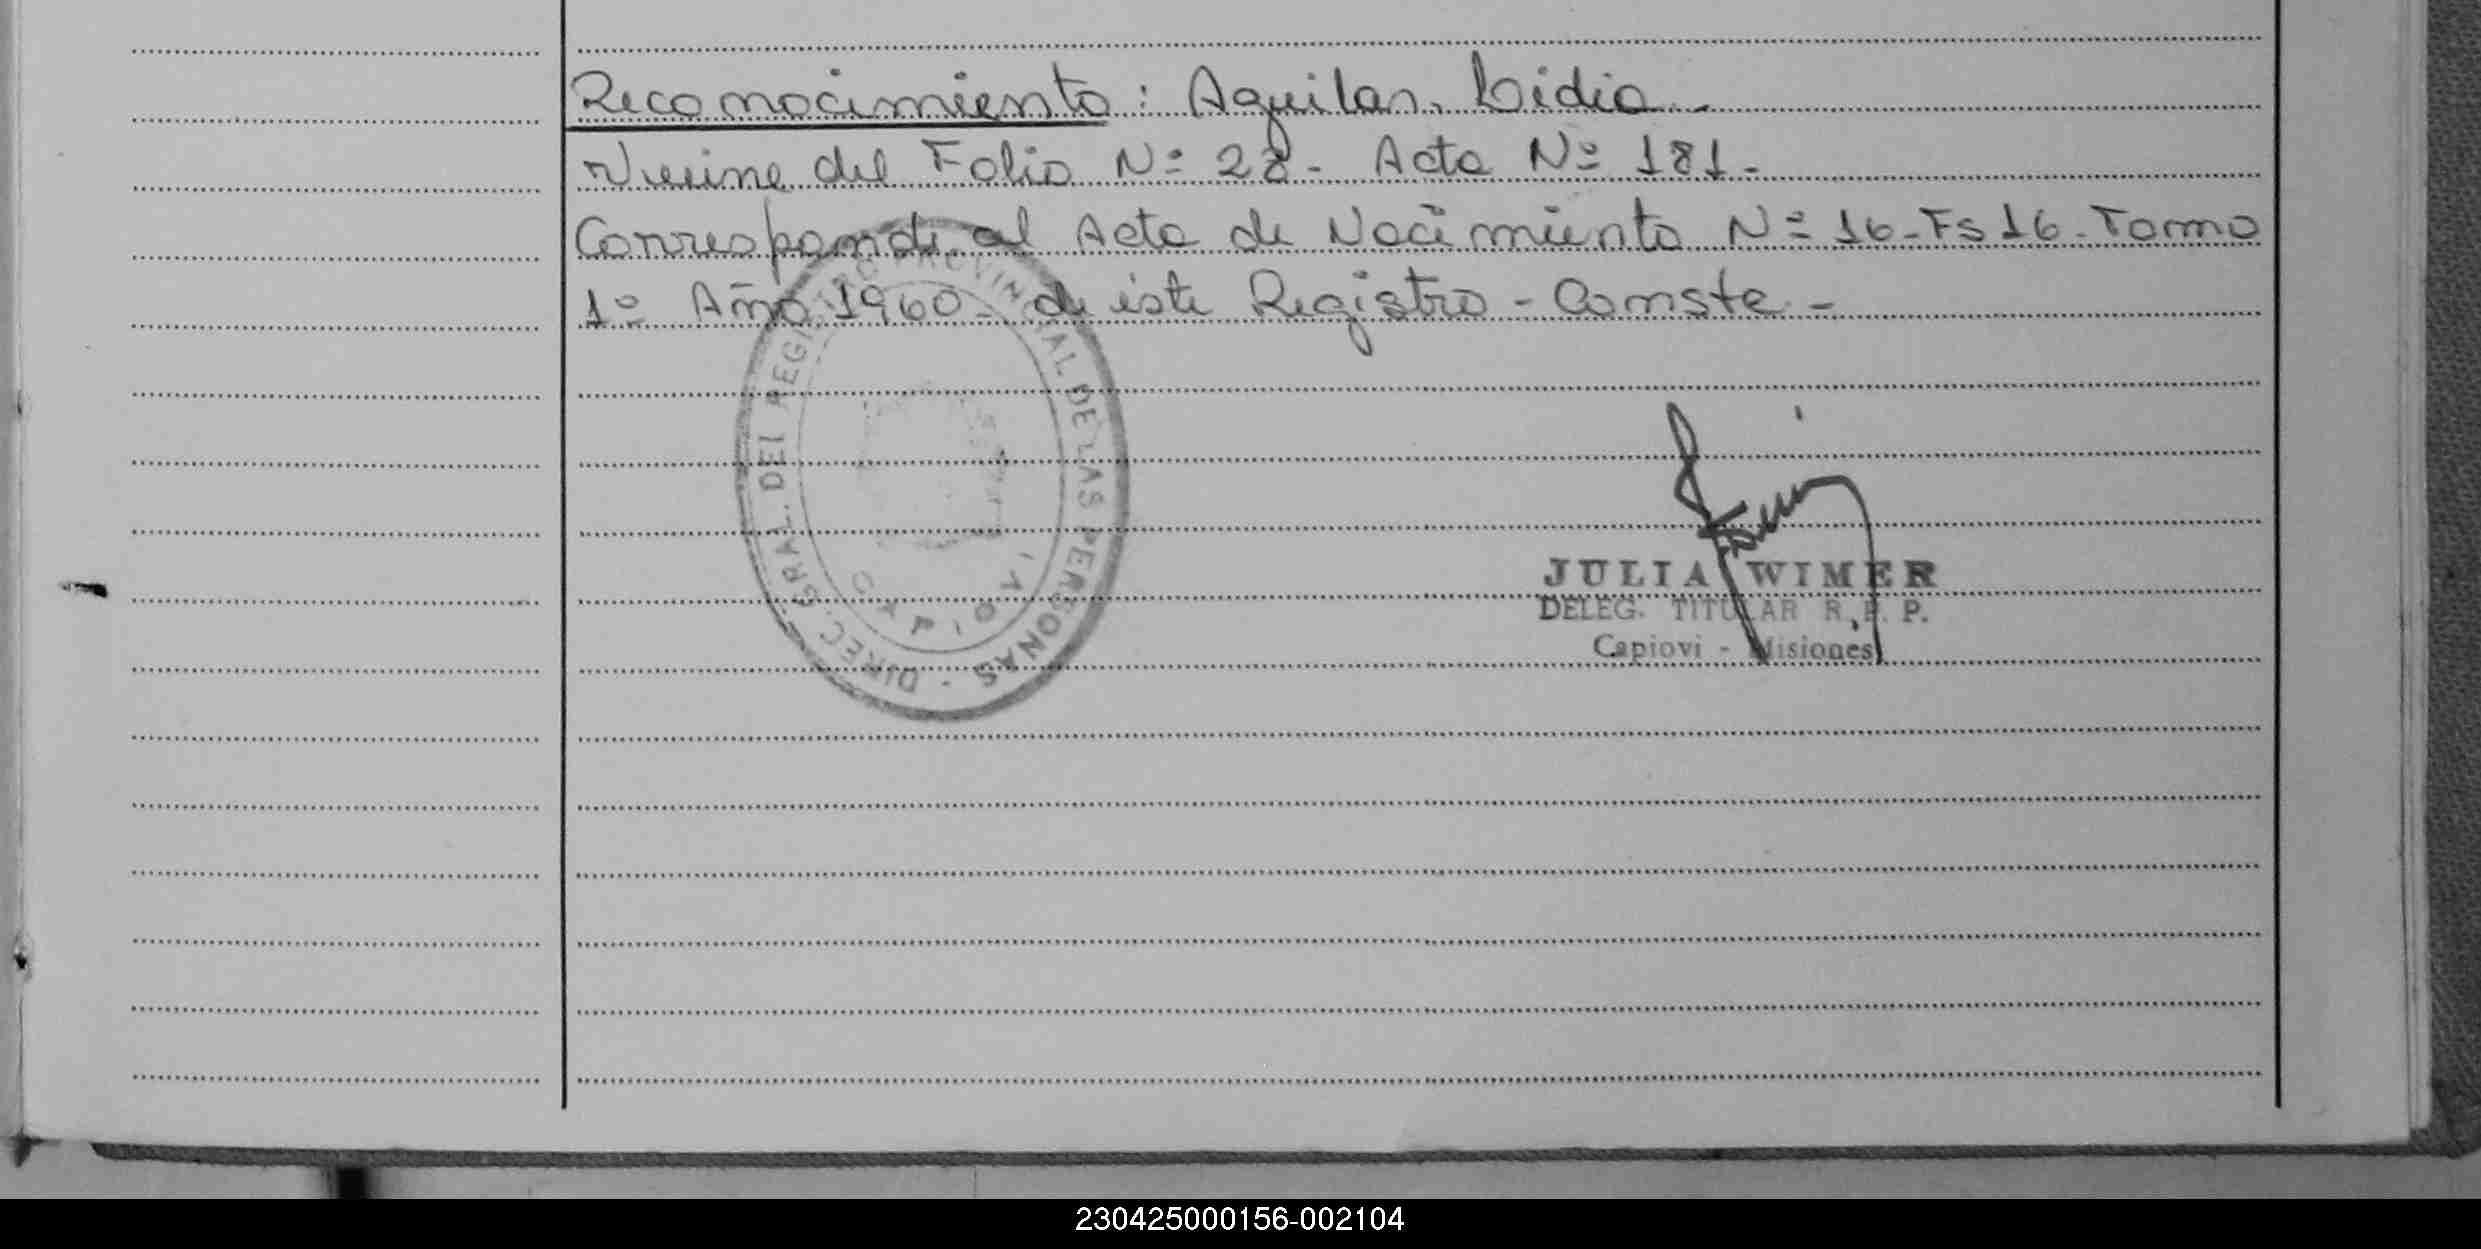 Reconocimiento: Aguilar, Lidia -
Viene del Folio Nº 28 - Acta Nº 181 -
Corresponde al Acta de Nacimiento Nº 16 - Fs 16 - Tomo
1º Año 1960 - de este Registro - Conste -
DIREC. GRAL. DEL REGISTRO PROVINCIAL DE LAS PERSONAS -
CAPIOVI
JULIA WIMER
DELEG. TITULAR R. P. P.
Capiovi - Misiones
230425000156-002104